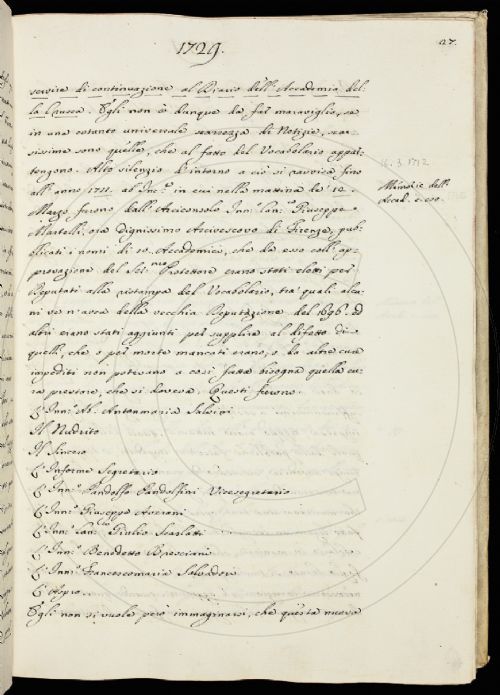 1729.
27.
servire di continuazione al Diario dell'Accademia del-
la Crusca. Egli non è dunque da far maraviglia, se
in una cotanto universale scarsezza di Notizie, scar-
sissime sono quelle, che al fatto del Vocabolario appar-
tengono. Alto silenzio d'intorno a ciò si ravvisa fino
all'anno 1711. ab Inc.ne in cui nella mattina de' 12.
Marzo furono dall'Arciconsolo Inn.to Can.co Giuseppe
Martelli, ora dignissimo Arcivescovo di Firenze, pub-
blicati i nomi di 10. Accademici, che da esso coll'ap-
provazione del Ser.mo Protettore erano stati eletti per
Deputati alla ristampa del Vocabolario, tra' quali alcu-
ni ve n'avea della vecchia Deputazione del 1696. ed
altri erano stati aggiunti per supplire al difetto di
quelli, che o per morte mancati erano, o da altre cure
impediti non potevano a così fatta bisogna quella cu-
ra prestare, che si doveva. Questi furono.
L'Inn.to Ab. Antonmaria Salvini
Il Nudrito
Il Sincero
L'Informe Segretario
L'Inn.to Pandolfo Pandolfini Vicesegretario
L'Inn.to Giuseppe Averani
L'Inn.to Can.co Giulio Scarlatti
L'Inn.to Benedetto Bresciani
L'Inn.to Francescomaria Salvadori
L'Aspro
Egli non si vuole però immaginarsi, che questa nuova
12. 3. 1712
Minerie dell'
Accad. c. 690.